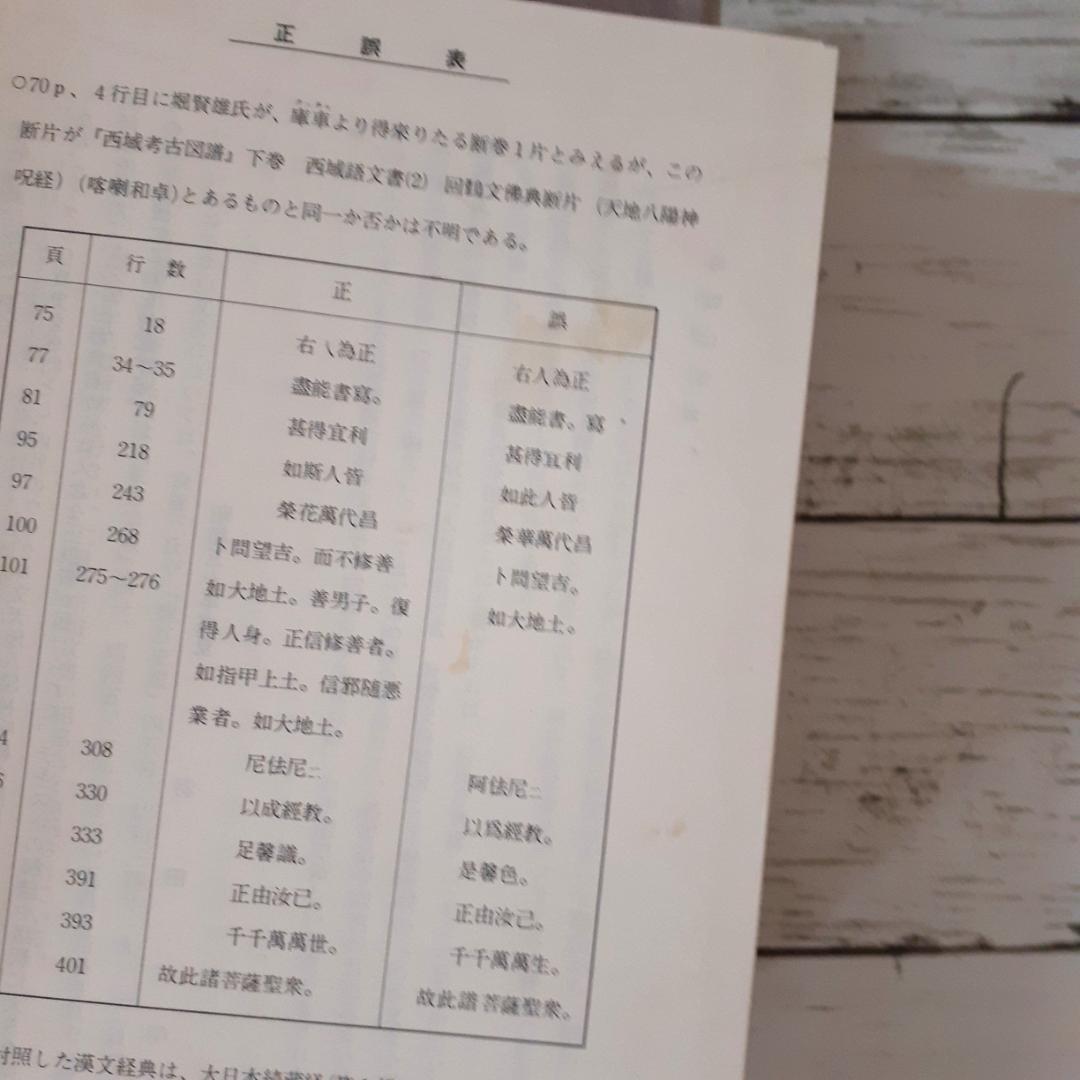 正誤表
○70p、4行目に堀賢雄氏が、庫車より得来りたる断巻1片とみえるが、この
断片が『西域考古図譜』下巻 西域語文書(2) 回鶻文佛典断片 (天地八陽神
呪経) (喀喇和卓)とあるものと同一か否かは不明である。
頁 行数 正 誤
75 18 右乀為正 右人為正
77 34〜35 盡能書寫。 盡能書。寫、
81 79 甚得宜利 甚得冝利
95 218 如斯人皆 如此人皆
97 243 榮花萬代昌 榮華萬代昌
100 268 卜問望吉。而不修善 卜問望吉。
101 275〜276 如大地土。善男子。復 如大地土。
得人身。正信修善者。
如指甲上土。信邪随悪
業者。如大地土。
308 尼佉尼二 阿佉尼二
330 以成經教。 以爲經教。
333 足馨識。 是馨色。
391 正由汝已。 正由汝己。
393 千千萬萬世。 千千萬萬生。
401 故此諸菩薩聖衆。 故此譜菩薩聖衆。
対照した漢文経典は、大日本